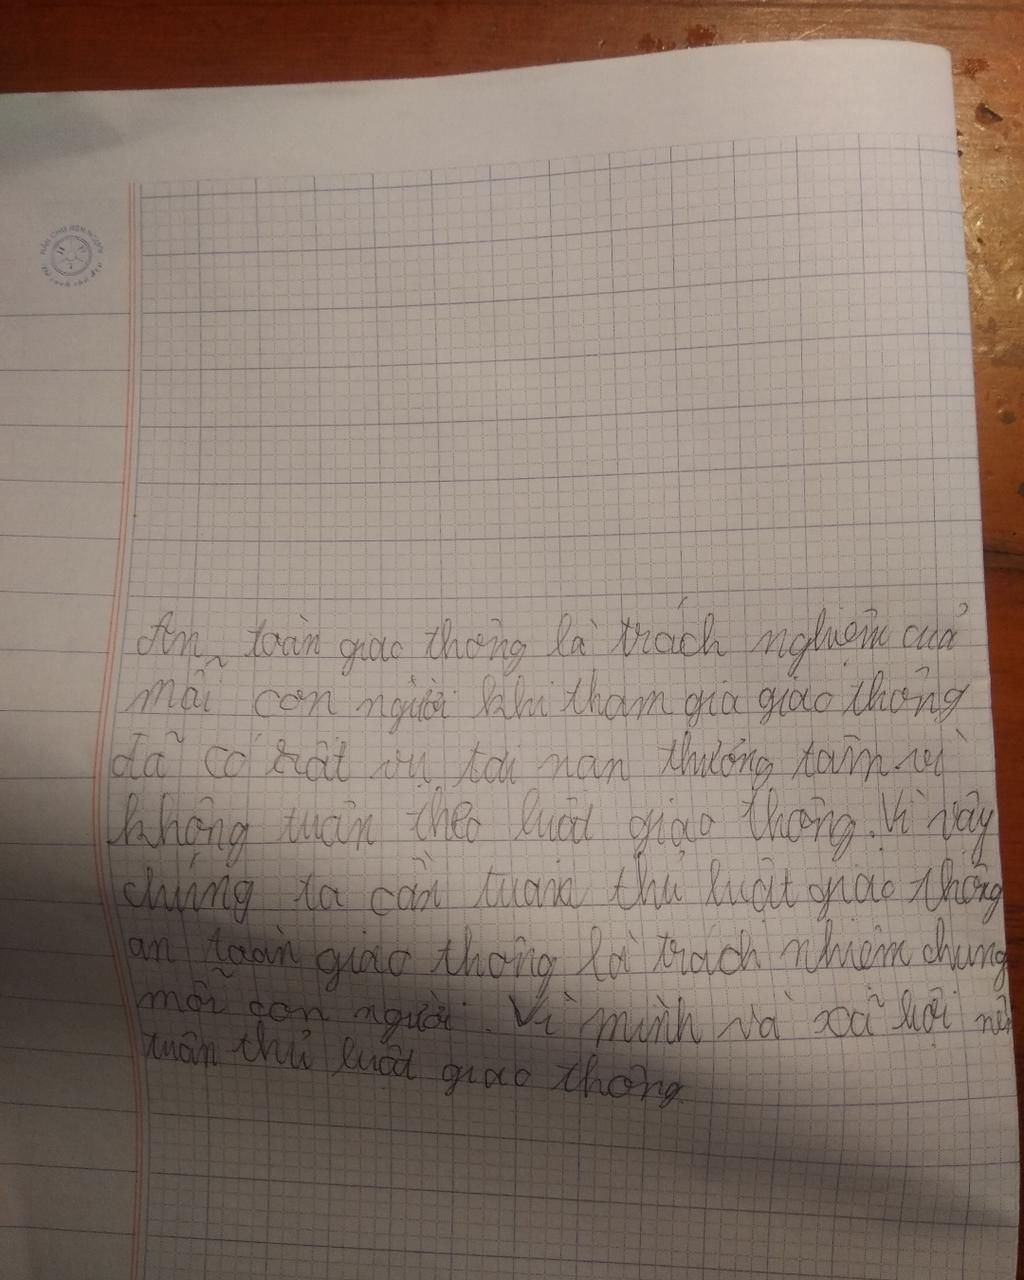 An toàn giao thông là trách nghiệm của
mỗi con người khi tham gia giao thông
đã có rất vụ tai nạn thương tâm vì
không tuân theo luật giao thông. Vì vậy
chúng ta cần tuân thủ luật giao thông
an toàn giao thông là trách nhiệm chung
mỗi con người. Vì mình và xã hội nên
tuân thủ luật giao thông